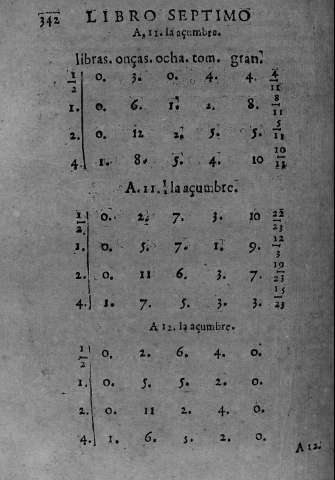 342 LIBRO SEPTIMO
A, 11. la açumbre.
libras. onças. ocha. tom. gran.
1/2 0. 3. 0. 4. 4. 4/11
1. 0. 6. 1. 2. 8. 8/11
2. 0. 12 2. 5. 5. 5/11
4. 1. 8. 5. 4. 10 10/11
A. 11. 1/2 la açumbre.
1/2 0. 2. 7. 3. 10 22/23
1. 0. 5. 7. 1. 9. 12/3
2. 0. 11 6. 3. 7. 19/23
4. 1. 7. 5. 3. 3. 15/23
A 12. la açumbre.
1/2 0. 2. 6. 4. 0.
1. 0. 5. 5. 2. 0.
2. 0. 11 2. 4. 0.
4. 1. 6. 5. 2. 0.
A 12.